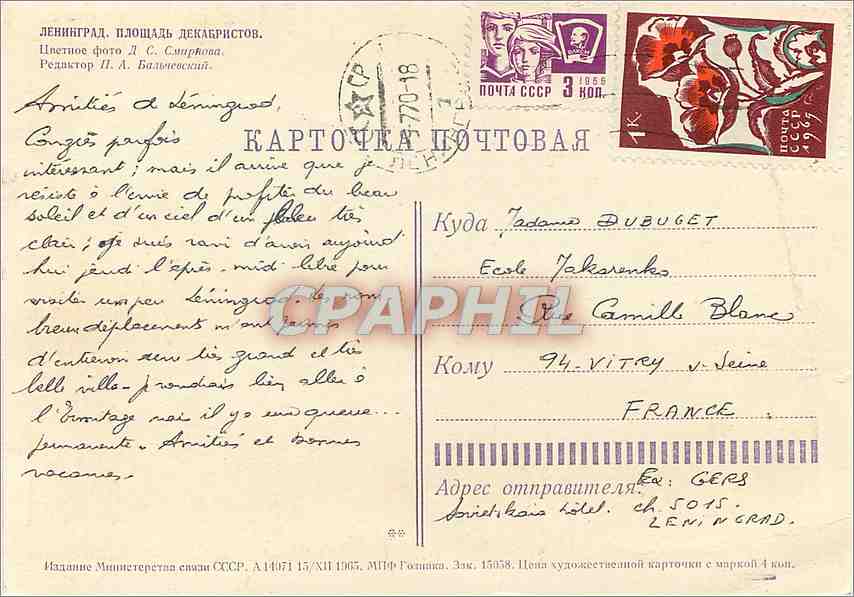 ЛЕНИНГРАД. ПЛОЩАДЬ ДЕКАБРИСТОВ.
Цветное фото Д С. Смирнова.
Редактор П. А. Бальчевский.
СР
9770-18
ЛЕНИНГРАД
1966
ПОЧТА СССР 3 КОП.
1К
ПОЧТА
СССР
1965
КАРТОЧКА ПОЧТОВАЯ
Amitiés de Léningrad,
Congrès parfois
intéressant ; mais il arrive que je
résiste à l'envie de profiter du beau
soleil et d'un ciel d'un bleu très
clair ; je suis ravi d'avoir aujourd
hui jeudi l'après-midi libre pour
visiter un peu Léningrad. Les nom-
breux déplacements m'ont permis
d'entrevoir une très grand et très
belle ville - je voudrais bien aller à
l'Ermitage mais il y a une queue...
permanente. Amitiés et bonnes
vacances.
Куда Madame DUBUGET
Ecole Makarenko
Rue Camille Blanc
Кому 94-VITRY s-Seine
FRANCE
Адрес отправителя: Ex: GERS
Sovietskaia hôtel. ch. 5015.
LENINGRAD.
CPAPHIL
Издание Министерства связи СССР. А 14071 15/XII 1965. МПФ Гознака. Зак. 15058. Цена художественной карточки с маркой 4 коп.